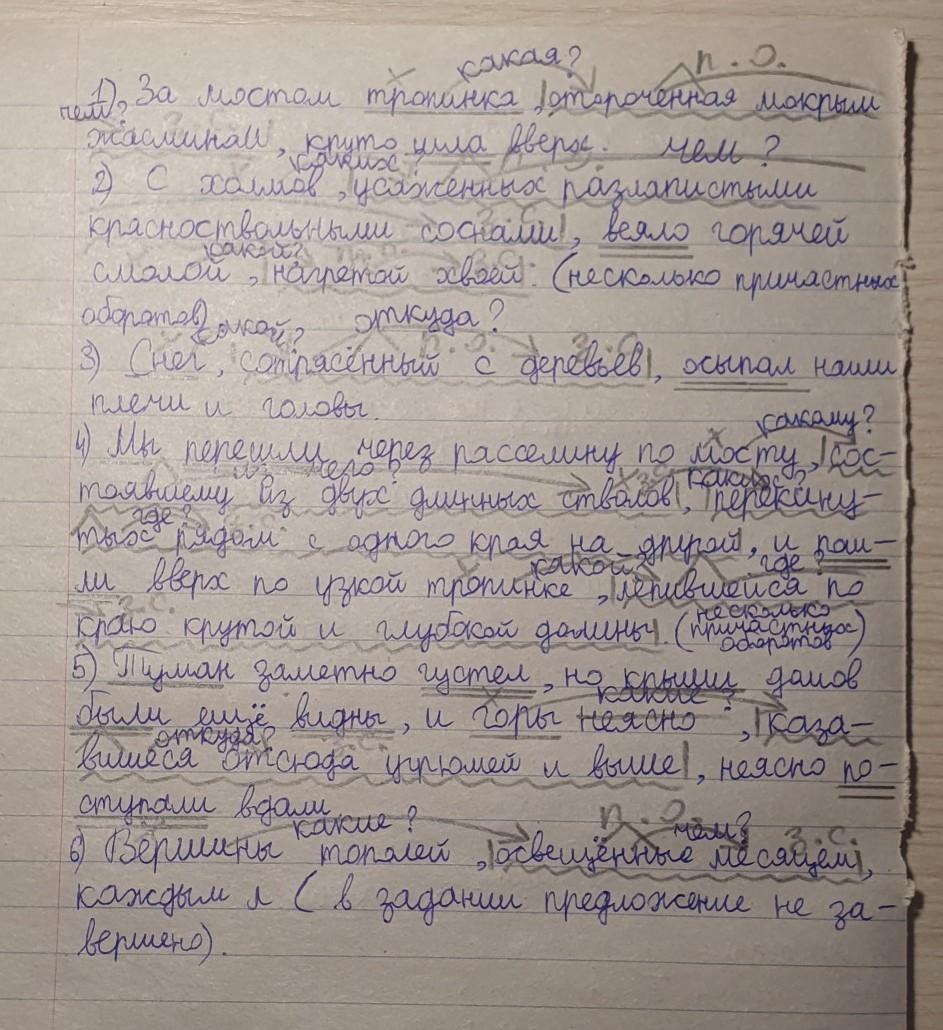 какая? п. о.
1) За мостом тропинка, отороченная мокрым
чем?
жасмином, круто шла вверх. чем?
каких?
2) С холмов, усаженных разлапистыми
красноствольными соснами, веяло горячей
какой?
смолой, нагретой хвоей. (несколько причастных
оборотов)
какой? откуда?
п. о. з. с.
3) Снег, сотрясённый с деревьев, осыпал наши
плечи и головы.
какому?
4) Мы перешли через расселину по мосту, сос-
из чего? каких?
тоявшему из двух длинных стволов, перекину-
где?
тых рядом с одного края на другой, и пош-
какой? где?
ли вверх по узкой тропинке, лепившейся по
з. с. несколько
краю крутой и глубокой долины. (причастных
оборотов)
5) Туман заметно густел, но крыши домов
какие?
были ещё видны, и горы неясно, каза-
откуда?
вшиеся отсюда угрюмей и выше, неясно по-
ступали вдали.
какие? п. о. чем? з. с.
6) Вершины тополей, освещённые месяцем,
каждым л ( в задании предложение не за-
вершено).